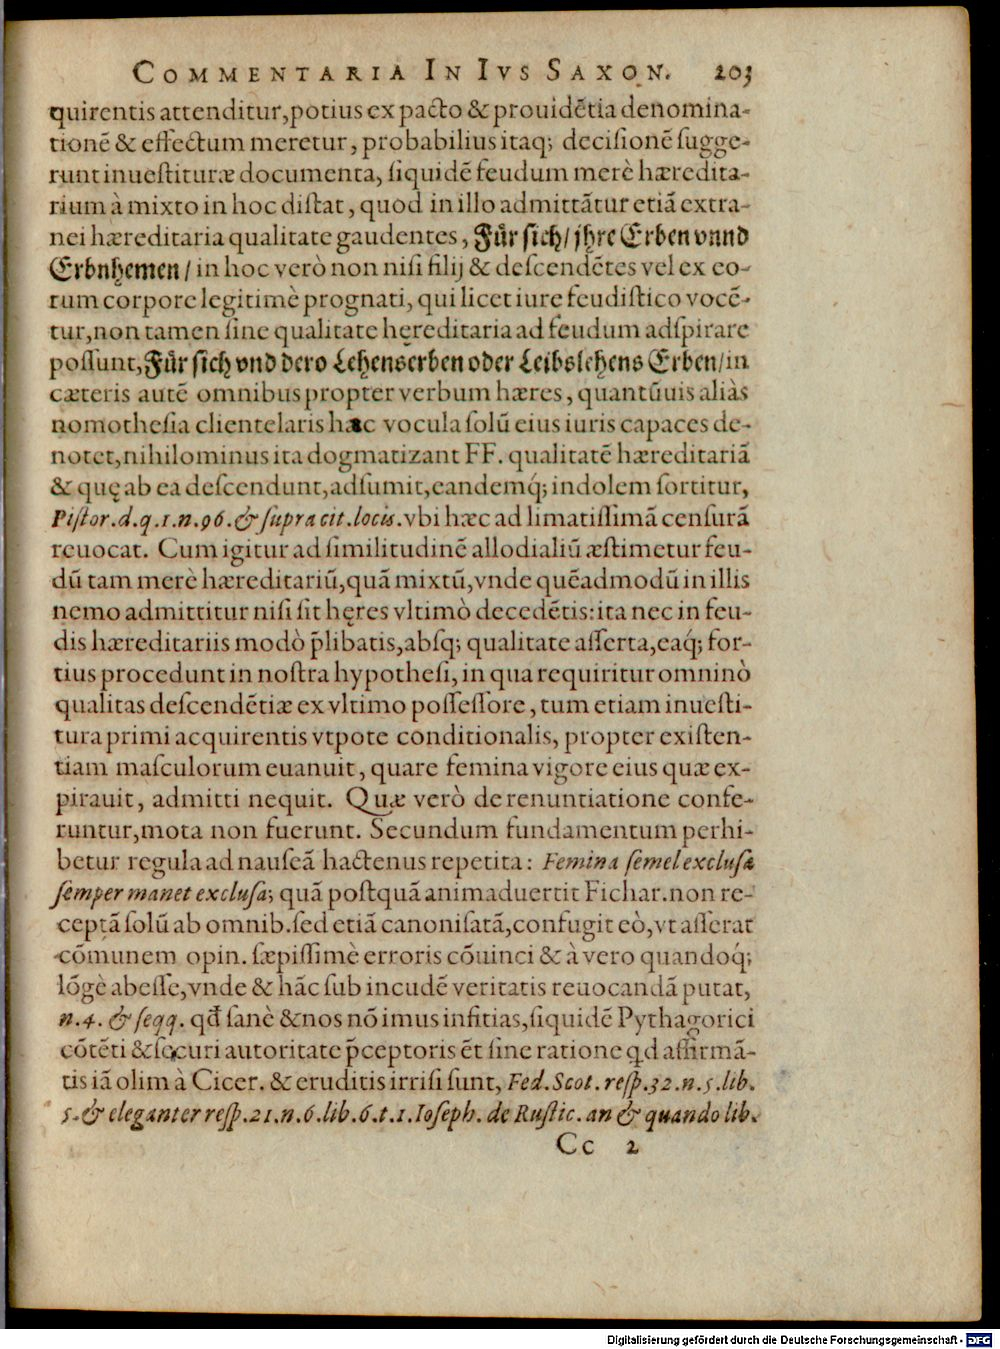 COMMENTARIA IN IVS SAXON. 203
quirentis attenditur, potius ex pacto & prouidẽtia denomina-
tionẽ & effectum meretur, probabilius itaq; decisionẽ sugge-
runt inuestituræ documenta, siquidẽ feudum merè hæredita-
rium à mixto in hoc distat, quod in illo admittãtur etiã extra-
nei hæreditaria qualitate gaudentes, Für sich/ jhre Erben vnnd
Erbnhemen/ in hoc verò non nisi filij & descendẽtes vel ex eo-
rum corpore legitimè prognati, qui licet iure feudistico vocẽ-
tur, non tamen sine qualitate hęreditaria ad feudum adspirare
possunt, Für sich vnd dero Lehenserben oder Leibslehens Erben/ in
cæteris autẽ omnibus propter verbum hæres, quantũuis aliàs
nomothesia clientelaris hæc vocula solũ eius iuris capaces de-
notet, nihilominus ita dogmatizant FF. qualitatẽ hæreditariã
& quę ab ea descendunt, adsumit, eandemq́; indolem sortitur,
Pistor. d. q. 1. n. 96. & supra cit. locis. vbi hæc ad limatissimã censurã
reuocat. Cum igitur ad similitudinẽ allodialiũ æstimetur feu-
dũ tam merè hæreditariũ, quã mixtũ, vnde quẽadmodũ in illis
nemo admittitur nisi sit hęres vltimò decedẽtis: ita nec in feu-
dis hæreditariis modò p̃libatis, absq; qualitate asserta, eaq́; for-
tius procedunt in nostra hypothesi, in qua requiritur omninò
qualitas descendẽtiæ ex vltimo possessore, tum etiam inuesti-
tura primi acquirentis vtpote conditionalis, propter existen-
tiam masculorum euanuit, quare femina vigore eius quæ ex-
pirauit, admitti nequit. Quæ verò de renuntiatione confe-
runtur, mota non fuerunt. Secundum fundamentum perhi-
betur regula ad nauseã hactenus repetita: Femina semel exclusa
semper manet exclusa; quã postquã animaduertit Fichar. non re-
ceptã solũ ab omnib. sed etiã canonisatã, confugit eò, vt asserat
cõmunem opin. sæpissimè erroris cõuinci & à vero quandoq́;
lõgè abesse, vnde & hãc sub incudẽ veritatis reuocandã putat,
n. 4. & seqq. qđ sanè & nos nõ imus infitias, siquidẽ Pythagorici
cõtẽti & securi autoritate p̃ceptoris ẽt sine ratione qd affirmã-
tis iã olim à Cicer. & eruditis irrisi sunt, Fed. Scot. resp. 32. n. 5. lib.
5. & eleganter resp. 21. n. 6. lib. 6. t. 1. Ioseph. de Rustic. an & quando lib.
Cc 2
Digitalisierung gefördert durch die Deutsche Forschungsgemeinschaft - DFG